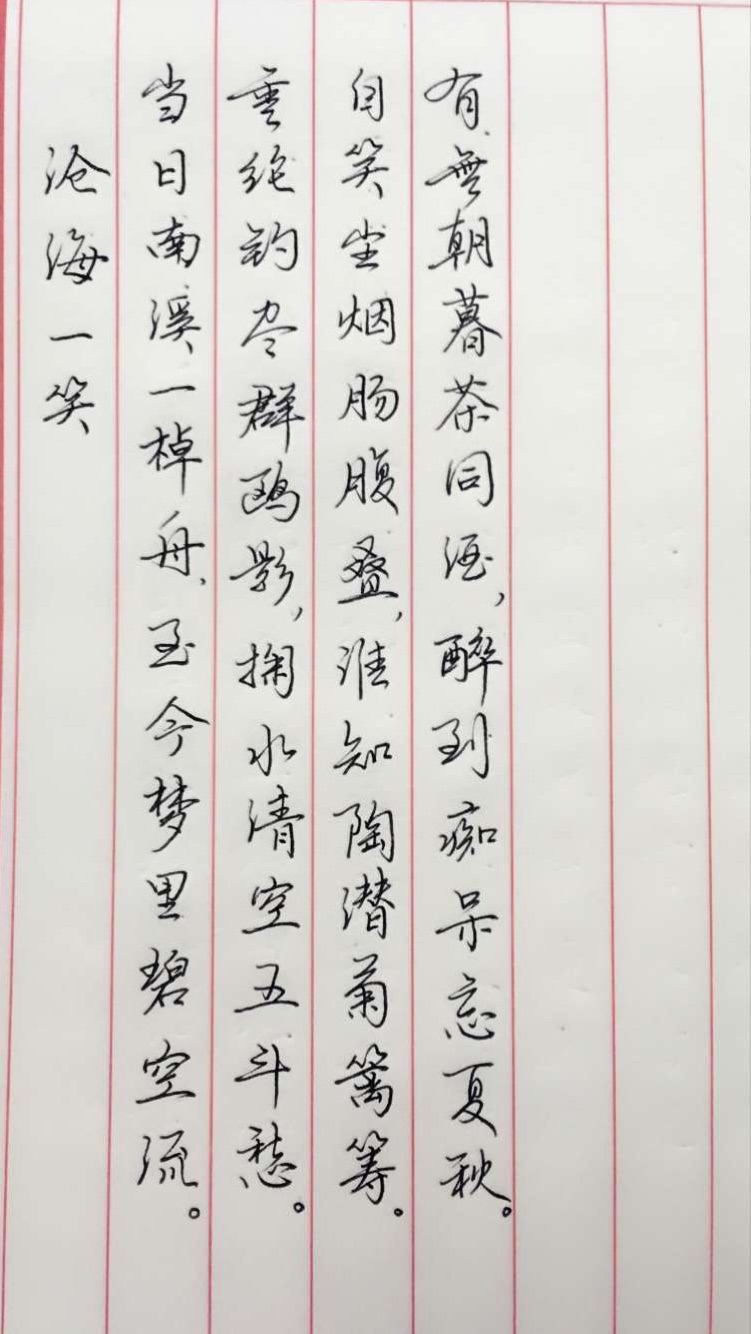 有無朝暮茶同酒,醉到痴呆忘夏秋。
自笑尘烟肠腹叠,谁知陶潜菊篱筹。
垂纶钓尽群鸥影,掬水清空五斗愁。
当日南溪一棹舟、至今梦里碧空流。
沧海一笑